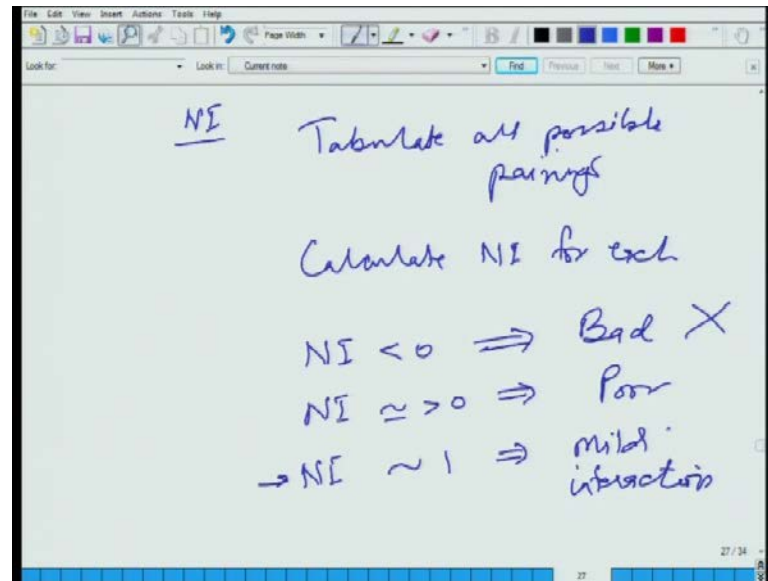 File Edit View Insert Actions Tools Help
Page Width
Look for: Look in: Current note Find Previous Next More
NI Tabulate all possible
pairings
Calculate NI for each
NI < 0 ⇒ Bad X
NI ≃ > 0 ⇒ Poor
→ NI ~ 1 ⇒ mild
interaction
27 / 34
27